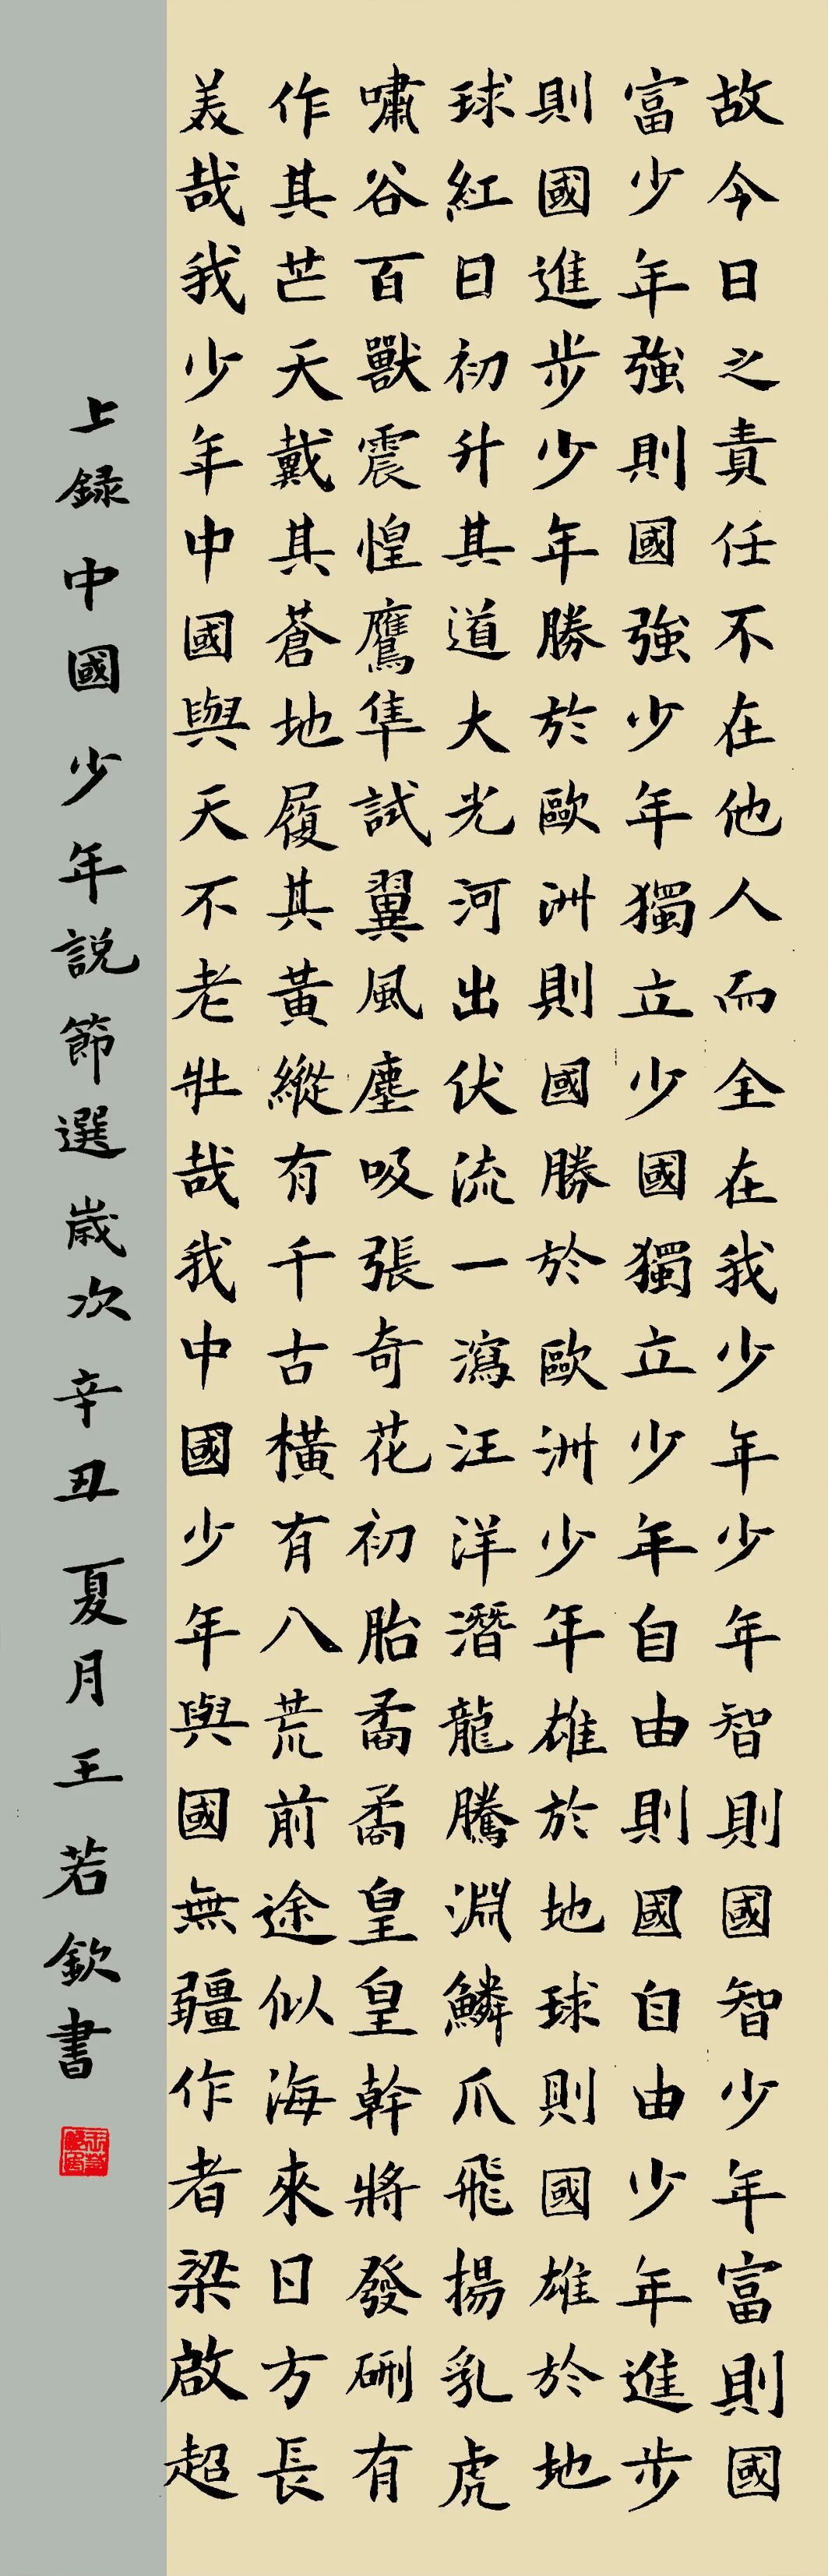 故今日之責任不在他人而全在我少年少年智則國智少年富則國
富少年強則國強少年獨立少國獨立少年自由則國自由少年進步
則國進步少年勝於歐洲則國勝於歐洲少年雄於地球則國雄於地
球紅日初升其道大光河出伏流一瀉汪洋潛龍騰淵鱗爪飛揚乳虎
嘯谷百獸震惶鷹隼試翼風塵吸張奇花初胎矞矞皇皇幹將發硎有
作其芒天戴其蒼地履其黃縱有千古橫有八荒前途似海來日方長
美哉我少年中國與天不老壯哉我中國少年與國無疆作者梁啟超
上録中國少年説節選歲次辛丑夏月王若欽書